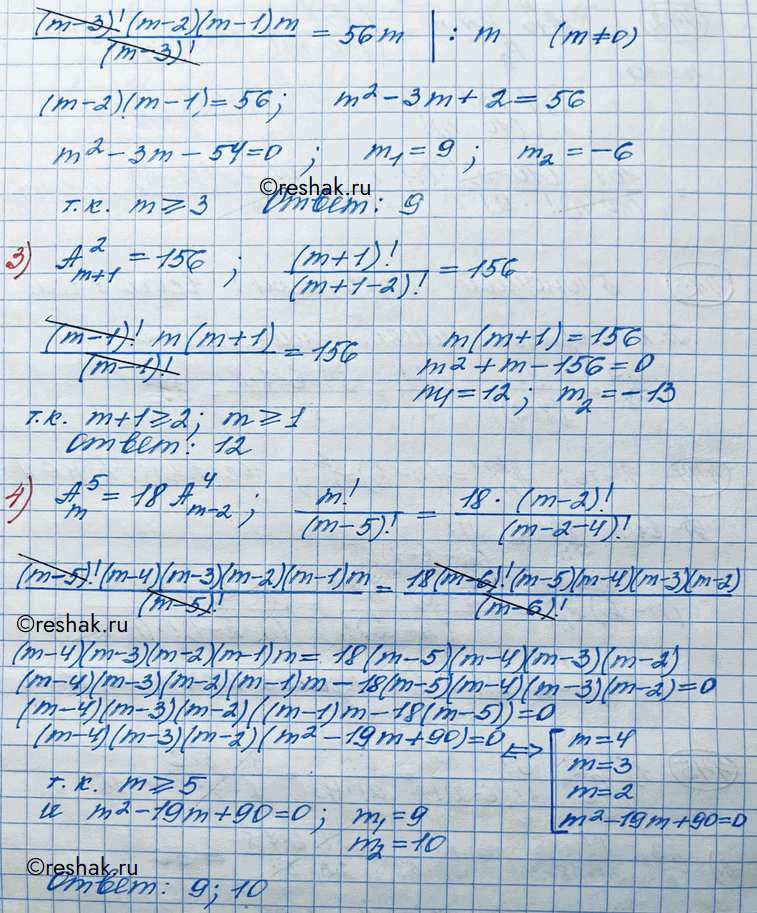 (m-3)!(m-2)(m-1)m / (m-3)! = 56m | : m (m≠0)
(m-2)(m-1)=56; m²-3m+2=56
m²-3m-54=0; m₁=9; m₂=-6
©reshak.ru
т.к. m⩾3 Ответ: 9
3) A²ₘ₊₁=156; (m+1)! / (m+1-2)! = 156
(m-1)! m(m+1) / (m-1)! = 156 m(m+1)=156
m2+m-156=0
m1=12; m₂=-13
т.к. m+1⩾2; m⩾1
Ответ: 12
4) A⁵ₘ=18A⁴ₘ₋₂; m! / (m-5)! = 18·(m-2)! / (m-2-4)!
(m-5)!(m-4)(m-3)(m-2)(m-1)m / (m-5)! = 18(m-6)!(m-5)(m-4)(m-3)(m-2) / (m-6)!
©reshak.ru
(m-4)(m-3)(m-2)(m-1)m=18(m-5)(m-4)(m-3)(m-2)
(m-4)(m-3)(m-2)(m-1)m-18(m-5)(m-4)(m-3)(m-2)=0
(m-4)(m-3)(m-2)((m-1)m-18(m-5))=0
(m-4)(m-3)(m-2)(m²-19m+90)=0 <=> [ m=4
m=3
m=2
m²-19m+90=0
т.к. m⩾5
и m²-19m+90=0; m₁=9
m₂=10
©reshak.ru
Ответ: 9; 10